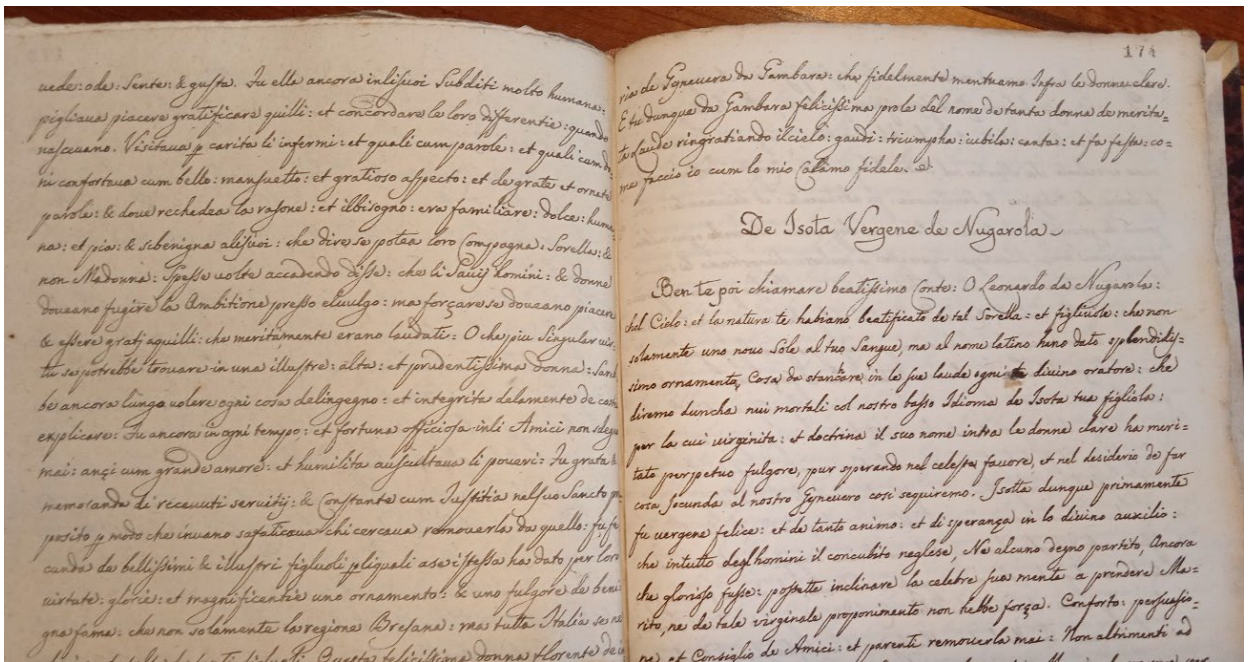 uede: ode: Sente: & gusta. Fu ella ancora inlisuoi Subditi molto humana:
pigliaua piacere gratificare quilli: et concordare le loro differentie: quando
nasceuano. Visitaua p carita li infermi: et quali cum parole: et quali cum do
ni confortaua cum bello: mansuetto: et gratioso aspecto: et de grate et ornate
parole: & doue rechedea la rasone: et ilbisogno: era familiare: dolce: huma
na: et pia: & si benigna alisuoi: che dire se potea loro Compagna: Sorella: &
non Madonna: Spesse uolte accadendo disse: che li Sauij homini: & donne
doueano fugire la Ambitione presso eluulgo: ma forçare se doueano piacere
& essere grati aquilli: che meritamente erano laudati: O che piu Singular uir
tu se potrebbe trouare in una illustre: alta: et prudentissima donna: Sareb
be ancora lungo uolere ogni cosa delingegno: et integrita delamente de costei
explicare: Fu ancora in ogni tempo: et fortuna officiosa inli Amici non sdegnò
mai: ançi cum grande amore: et humilita auscultaua li poueri: Fu grata &
memoranda di receuuti seruitij: & Constante cum Iustitia nelsuo Sancto pro
posito p modo che inuano safaticaua chi cercaua remouerla da quello: fu fe
cunda de bellissimi & illustri figluoli pliquali a se istessa ha dato per loro
uirtute: glorie: et magnificentie uno ornamento: & uno fulgore de beni
gna fama: che non solamente la regione Bresana: ma tutta Italia se ne
Questa felicissima donna florente de
174
ria de Gyneuera da Gambara: che fidelmente mentuamo Infra le donne clare.
E tu dunque da Gambara felicissima prole del nome de tanta donna de merita=
ta Laude ringratiando il cielo: gaudi: triumpha: iubila: canta: et fa festa: co=
me faccio io cum lo mio Calamo fidale.
De Isota Vergene de Nugarola
Ben te poi chiamare beatissimo Conte: O Leonardo da Nugarola:
chel Cielo: et la natura te habiano beatificato de tal Sorella: et figliuole: che non
solamente uno nouo Sole al tuo Sangue, ma al nome latino heno dato splendidis=
simo ornamento, Cosa da stancare in le sue laude ogni divino oratore: che
diremo duncha nui mortali col nostro basso Idioma de Isota tua figliola:
per la cui uirginita: et doctrina il suo nome intra le donne clare ha meri=
tato perpetuo fulgore, pur sperando nel celeste fauore, et nel desiderio de far
cosa Jocunda al nostro Gyneuero cosi seguiremo. Isotta dunque primamente
fu uergene felice: et de tanto animo: et di sperança in lo diuino auxilio:
che intutto deglhomini il concubito neglese, Ne alcuno degno partito, Ancora
che glorioso fusse: possette inclinare la celebre sua mente a prendere Ma=
rito, ne da tale virginale proponimento non hebbe força. Conforto: persuasio=
ne et Consiglio de Amici: et parenti remouerla mai: Non altrimenti ad